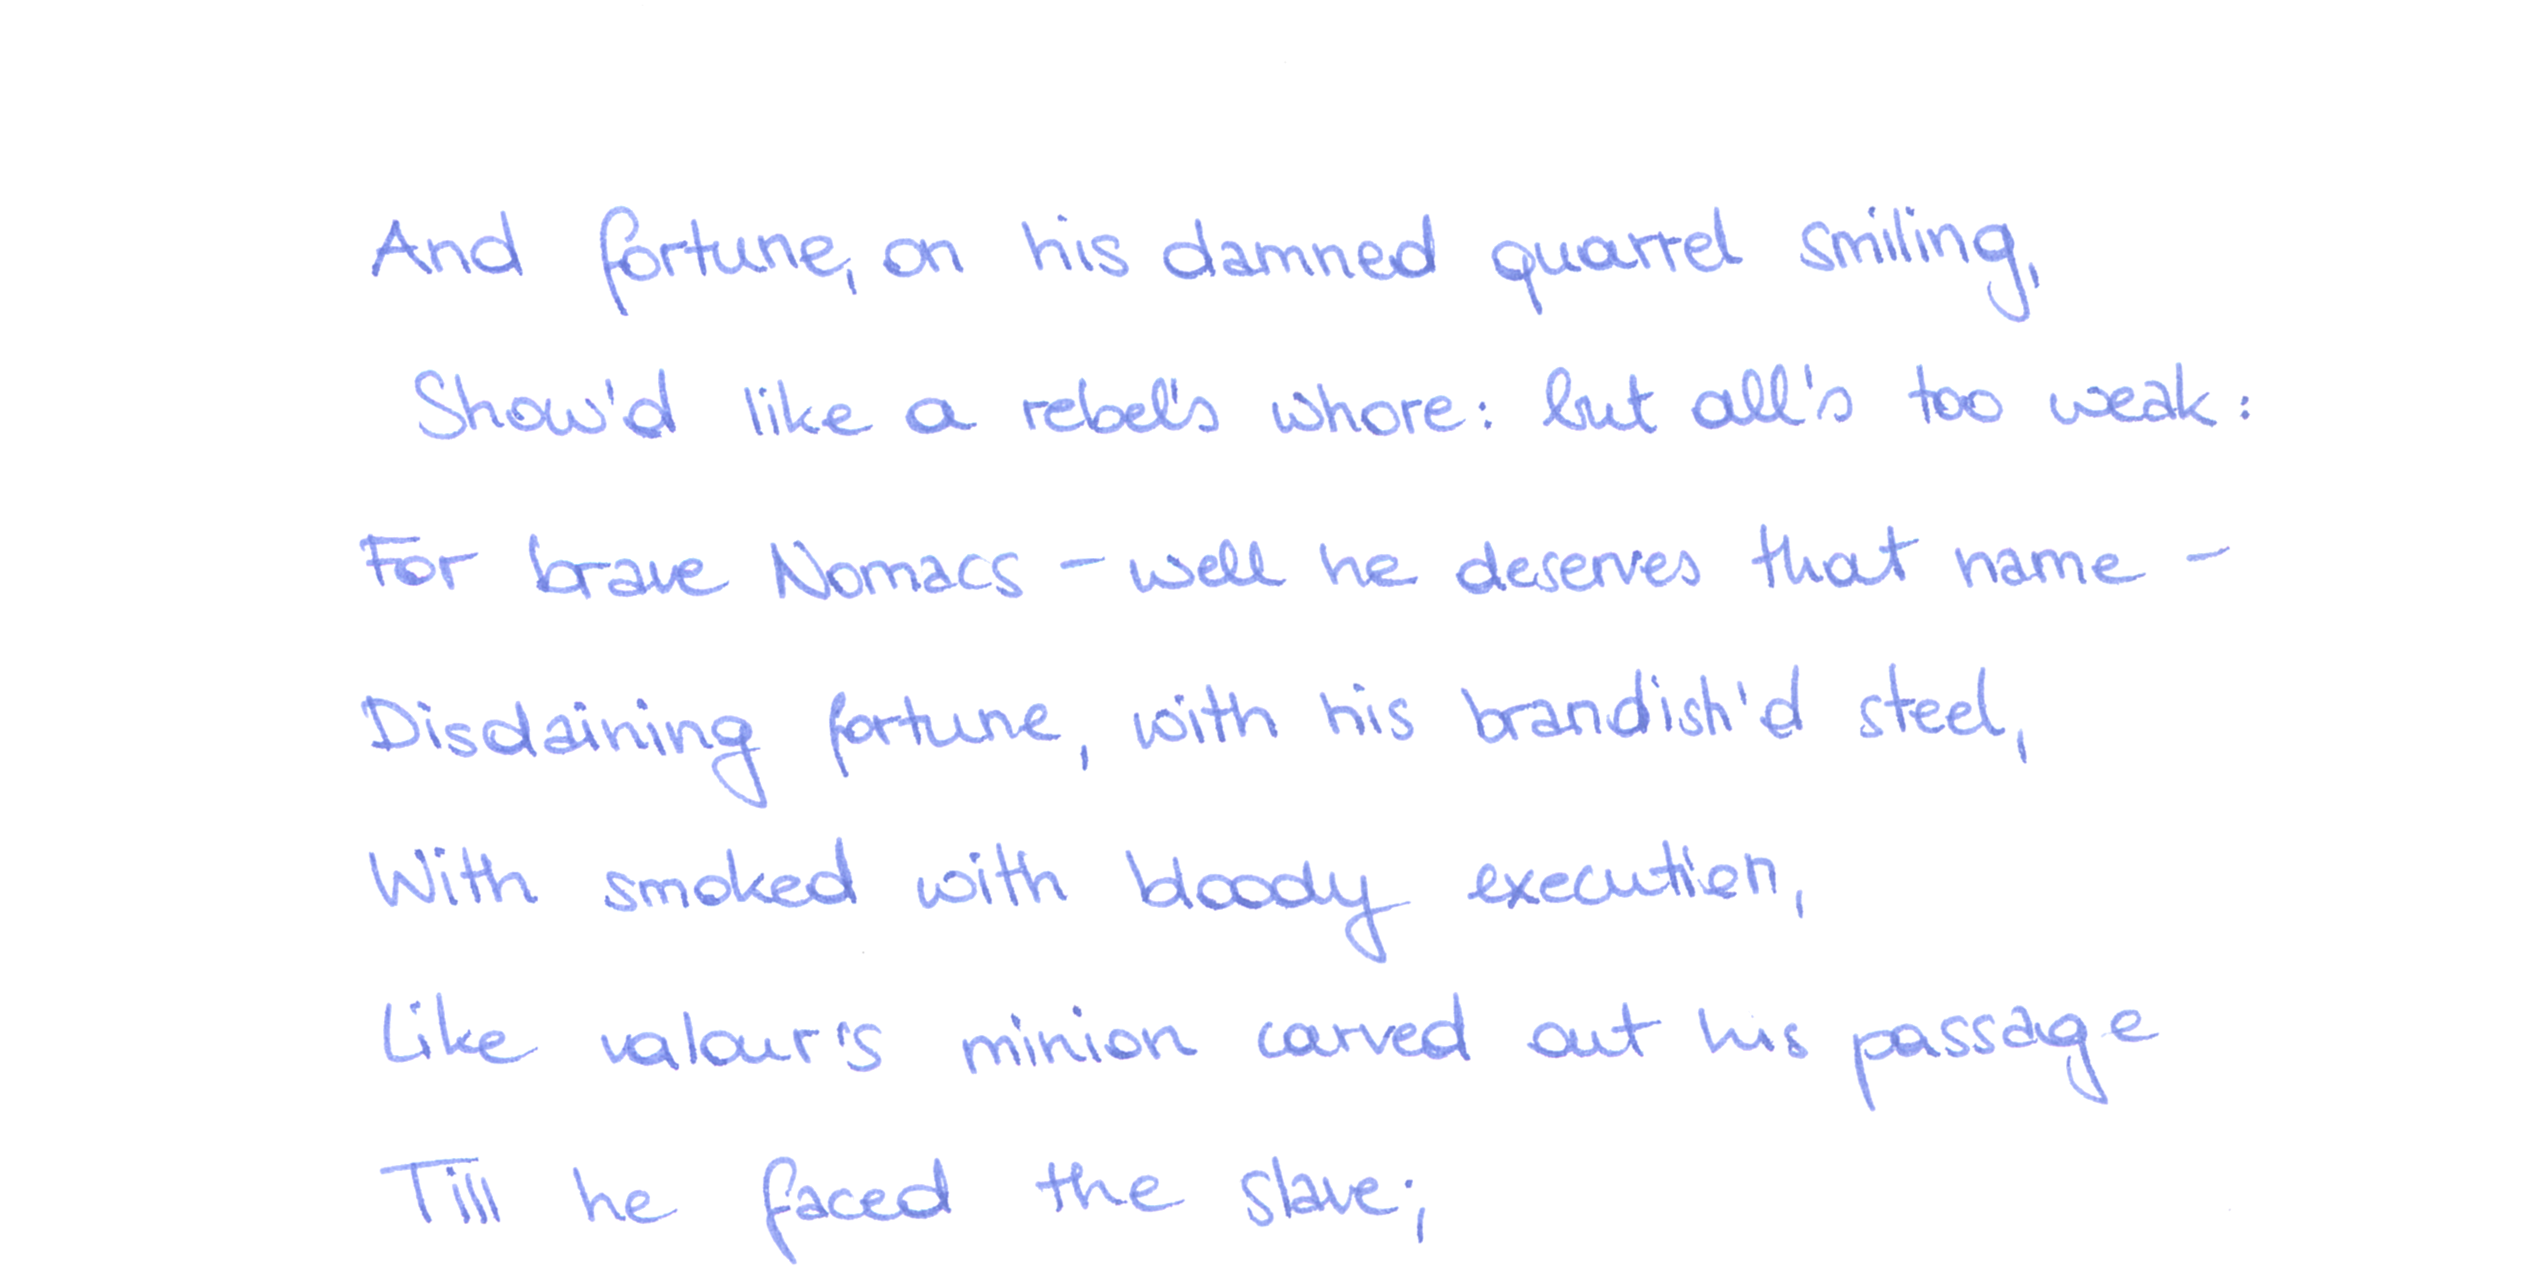 And fortune, on his damned quarrel smiling,
Show'd like a rebel's whore: but all's too weak:
For brave Nomacs - well he deserves that name -
Disdaining fortune, with his brandish'd steel,
With smoked with bloody execution,
Like valour's minion carved out his passage
Till he faced the slave;